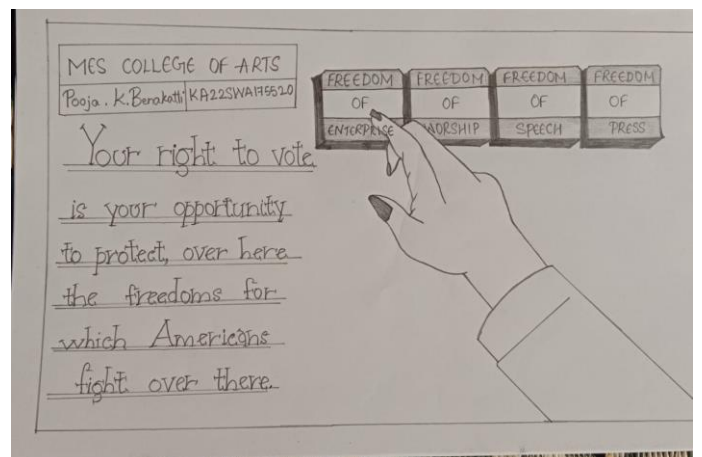 MES COLLEGE OF ARTS
Pooja. K. Berakotti KA22SWA175520
FREEDOM OF ENTERPRISE
FREEDOM OF WORSHIP
FREEDOM OF SPEECH
FREEDOM OF PRESS
Your right to vote
is your opportunity
to protect, over here
the freedoms for
which Americans
fight over there.